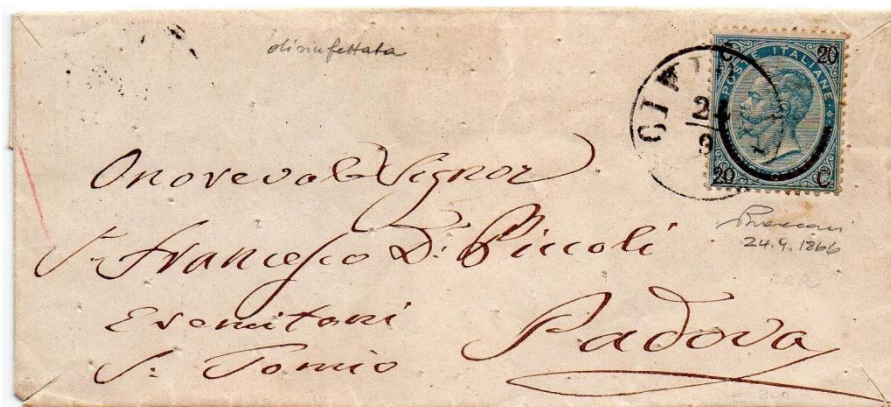 disinfettata
POSTE ITALIANE
20
20 C
24
9
24.9.1866
Onorevole Signor
Sr. Francesco Di. Piccoli
Eremitani
S: Tomio
Padova